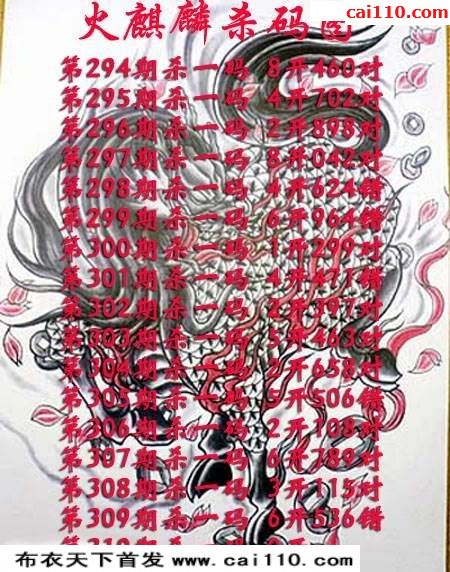 cai110.com
火麒麟杀码
第294期杀一码 8开460对
第295期杀一码 4开702对
第296期杀一码 2开898对
第297期杀一码 8开042对
第298期杀一码 4开624错
第299期杀一码 6开964错
第300期杀一码 1开299对
第301期杀一码 4开471错
第302期杀一码 2开397对
第303期杀一码 5开463对
第304期杀一码 2开658对
第305期杀一码 5开506错
第306期杀一码 2开108对
第307期杀一码 6开789对
第308期杀一码 3开115对
第309期杀一码 6开536错
布衣天下首发 www.cai110.com